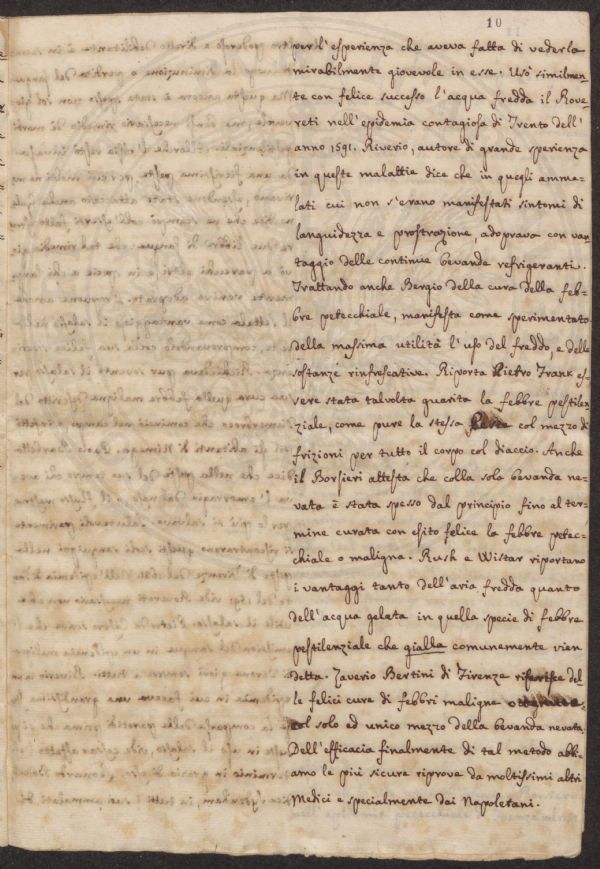 10
per l'esperienza che aveva fatta di vederla
mirabilmente giovevole in esse. Usò similmen=
te con felice successo l'acqua fredda il Rove=
reti nell'epidemia contagiosa di Trento dell'
anno 1591. Riverio, autore di grande sperienza
in queste malattie dice che in quegli amma=
lati cui non s'erano manifestati sintomi di
languidezza e prostrazione, adoprava con van
taggio delle continue bevande refrigeranti.
Trattando anche Bergio della cura della feb=
bre petecchiale, manifesta come sperimentato
della massima utilità l'uso del freddo, e delle
sostanze rinfrescative. Riporta Pietro Frank es=
sere stata talvolta guarita la febbre pestilen=
ziale, come pure la stessa col mezzo di
frizioni per tutto il corpo col diaccio. Anche
il Borsieri attesta che colla sola bevanda ne=
vata è stata spesso dal principio fino al ter=
mine curata con esito felice la febbre petec=
chiale o maligna. Rush e Wistar riportano
i vantaggi tanto dell'aria fredda quanto
dell'acqua gelata in quella specie di febbre
pestilenziale che gialla comunemente vien
detta. Zaverio Bertini di Firenze riferisce del=
le felici cure di febbri maligne
col solo ed unico mezzo della bevanda nevata.
Dell'efficacia finalmente di tal metodo abb=
amo le più sicure riprove da moltissimi altri
Medici e specialmente dai Napoletani.